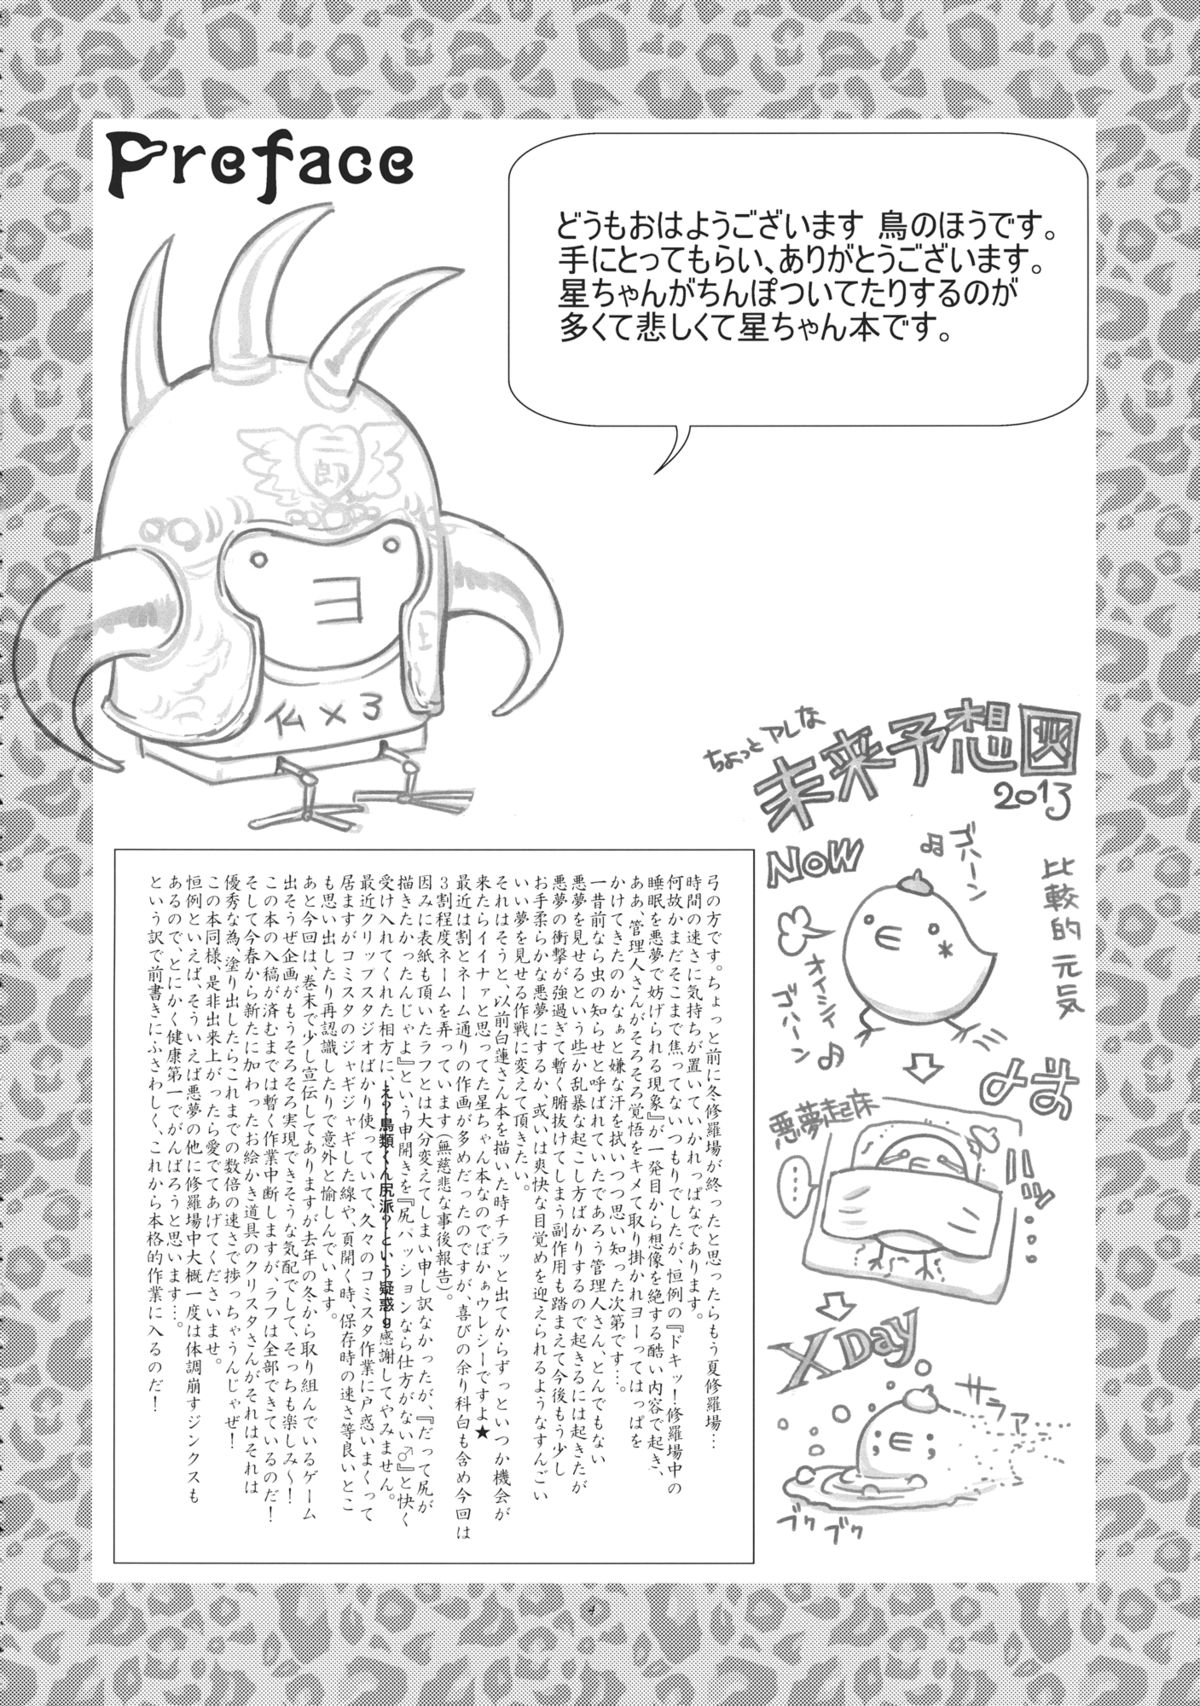 Preface
どうもおはようございます 鳥のほうです。
手にとってもらい、ありがとうございます。
星ちゃんがちんぽついてたりするのが
多くて悲しくて星ちゃん本です。
二郎
ヨ
上
仏×3
ちょっとアレな
未来予想図
2013
NOW
ゴハーン
比較的元気
オイシイ
ゴハーン
よま
悪夢起床
……
ハッ…
X Day
サラファー
ブクブク
弓の方です。ちょっと前に冬修羅場が終ったと思ったらもう夏修羅場…
時間の速さに気持ちが置いていかれっぱなであります。
何故かまだそこまで焦ってないつもりでしたが、恒例の『ドキッ！修羅場中の
睡眠を悪夢で妨げられる現象』が一発目から想像を絶する酷い内容で起き、
ああ、管理人さんがそろそろ覚悟をキメて取り掛かれヨーってはっぱを
かけてきたのかなぁと嫌な汗を拭いつつ思い知った次第です…。
一昔前なら虫の知らせと呼ばれていたであろう管理人さん、とんでもない
悪夢を見せるという些か乱暴な起こし方ばかりするので起きるには起きたが
悪夢の衝撃が強過ぎて暫く腑抜けてしまう副作用も踏まえて今後もう少し
お手柔らかな悪夢にするか、或いは爽快な目覚めを迎えられるようなすんごい
いい夢を見せる作戦に変えて頂きたい。
それはそうと、以前白蓮さん本を描いた時チラッと出てからずっといつか機会が
来たらイイナァと思ってた星ちゃん本なのでばかぁウレシーですよ★
最近は割とネーム通りの作画が多めだったのですが、喜びの余り科白も含め今回は
3割程度ネームを弄っています（無慈悲な事後報告）。
因みに表紙も頂いたラフとは大分変えてしまい申し訳なかったが、『だって尻が
描きたかったんじゃよ』という申開きを『尻パッションなら仕方がない♂』と快く
受け入れてくれた相方に、え？鳥類くん尻派？という疑惑g感謝してやみません。
最近クリップスタジオばかり使っていて、久々のコミスタ作業に戸惑いまくって
居ますがコミスタのジャギジャギした線や、頁開く時、保存時の速さ等良いとこ
も思い出したり再認識したりで意外と愉しんでいます。
あと今回は、巻末で少し宣伝してありますが去年の冬から取り組んでいるゲーム
出そうぜ企画がもうそろそろ実現できそうな気配でして、そっちも楽しみ～！
この本の入稿が済むまでは暫く作業中断しますが、ラフは全部できているのだ！
そして今春から新たに加わったお絵かき道具のクリスタさんがそれはそれは
優秀な為、塗り出したらこれまでの数倍の速さで捗っちゃうんじゃぜ！
この本同様、是非出来上がったら愛でてあげてくださいませ。
恒例といえば、そういえば悪夢の他に修羅場中大概一度は体調崩すジンクスも
あるので、とにかく健康第一でがんばろうと思います…。
という訳で前書きにふさわしく、これから本格的作業に入るのだ！
4